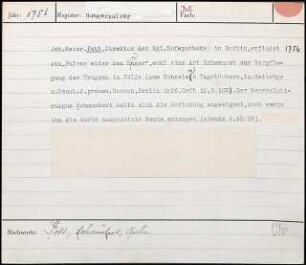 Jahr: 1756 Register: Hungerpulver Fach:
Joh. Heinr. Pott, Direktor der Kgl. Hofapotheke in Berlin, erfindet 1756
ein „Pulver wider den Hunger", wohl eine Art Erbswurst zur Verpfle-
gung der Truppen im Felde (aus Scheele's Tagebüchern, in: Beiträge
z. Gesch. d. preuss. Heeres, Berlin Heft
rungs Schmuckert hatte sich die Erfindung angeeignet, doch waren
ihm die dafür ausgesetzte Rente entzogen (ebenda
Stichworte: Pott, Schmuckert, Berlin
Chr